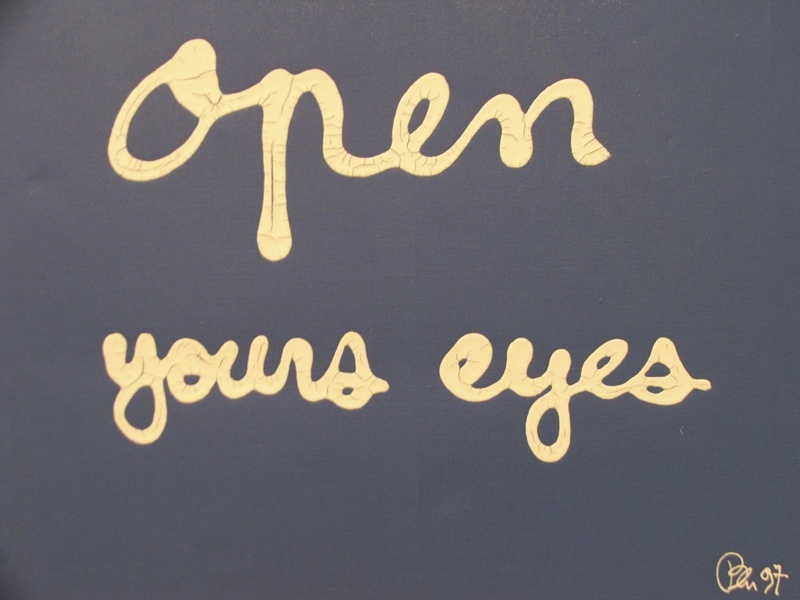 open
yours eyes
Ben 97